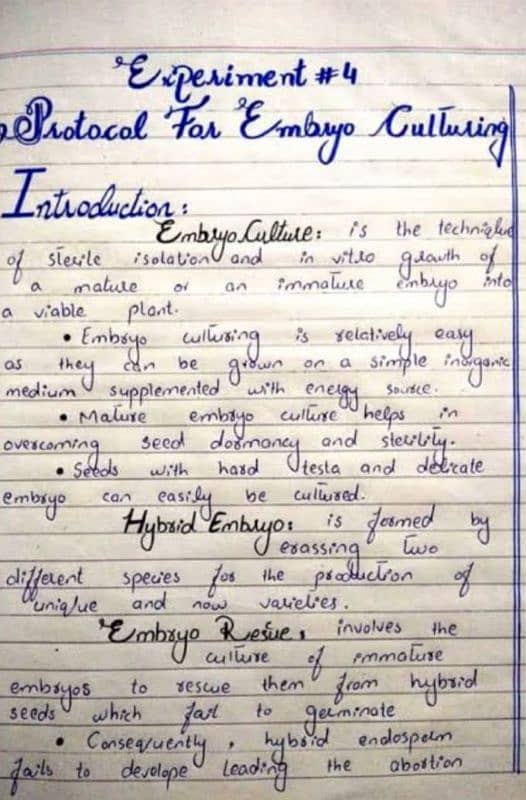 Experiment #4
Protocol For Embryo Culturing
Introduction:
Embryo Culture: is the technique
of sterile isolation and in vitro growth of
a mature or an immature embryo into
a viable plant.
• Embryo culturing is relatively easy
as they can be grown on a simple inorganic
medium supplemented with energy source.
• Mature embryo culture helps in
overcoming seed dormancy and sterility.
• Seeds with hard testa and delicate
embryo can easily be cultured.
Hybrid Embryo: is formed by
crassing two
different species for the production of
uniq/ue and now varieties.
Embryo Resue: involves the
culture of immature
embryos to rescue them from hybrid
seeds which fail to germinate
• Conseq/uently, hybrid endosperm
fails to devolope leading the abortion